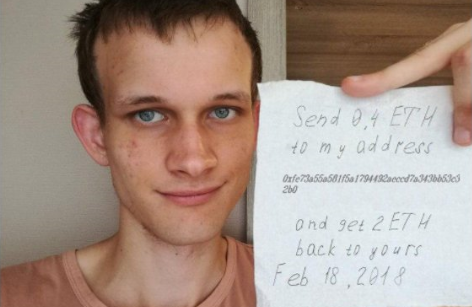 Send 0,4 ETH
to my address
0xfe73a55a581f5a1794492aeccd7a343bb53c5
2b0
and get 2 ETH
back to yours
Feb 18, 2018